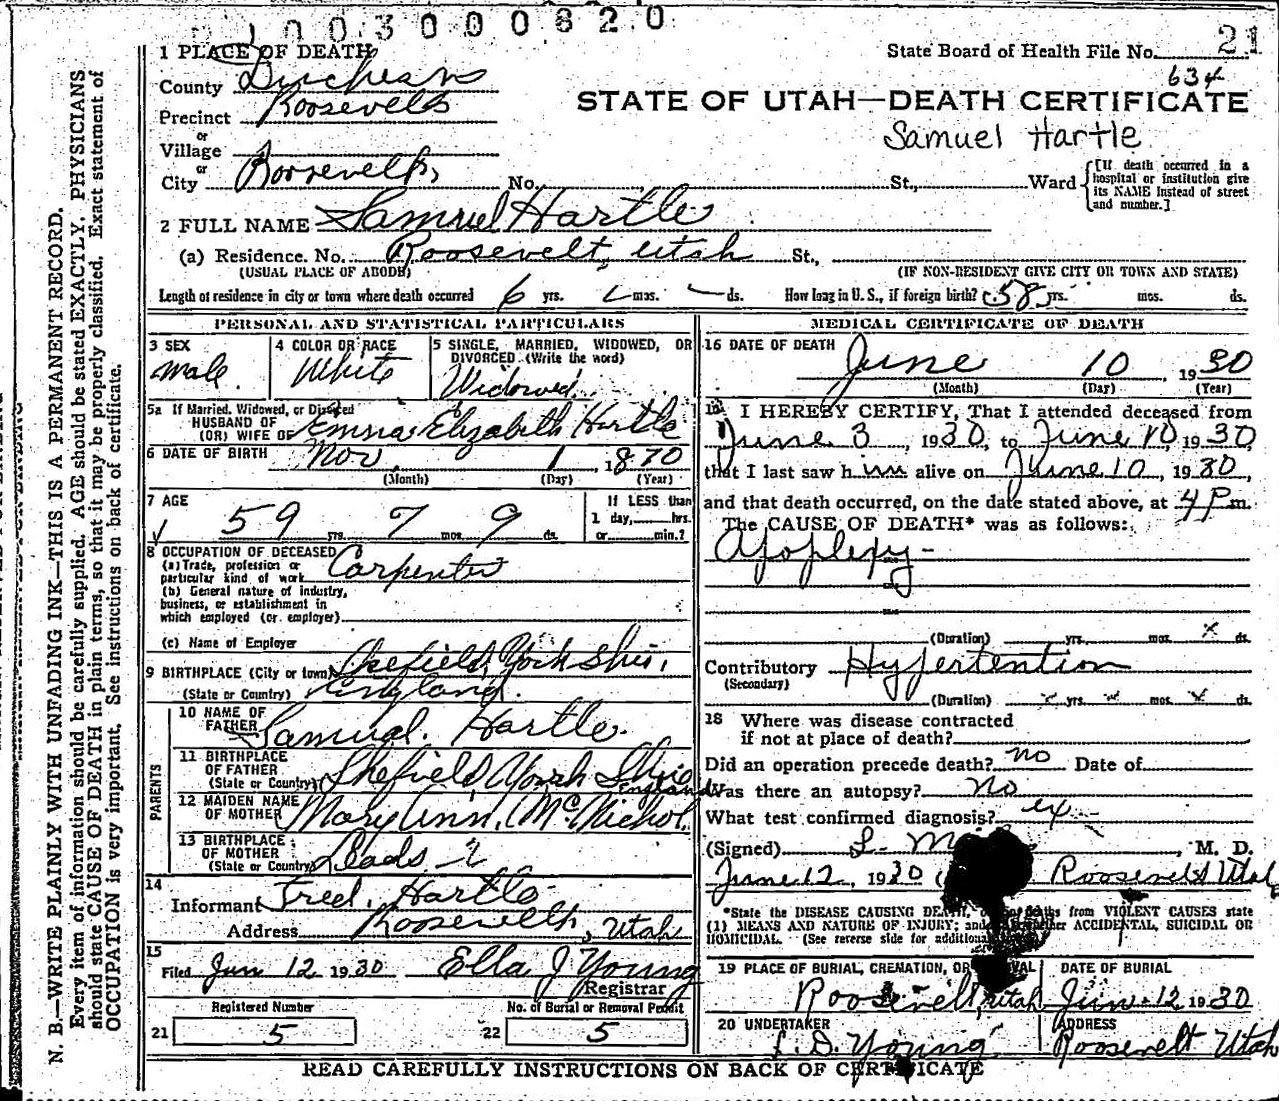 003000820
1 PLACE OF DEATH
State Board of Health File No. 21
634
County Duchesne
STATE OF UTAH—DEATH CERTIFICATE
Precinct Roosevelt
Samuel Hartle
or
Village
or
City Roosevelt, No. St., Ward
[If death occurred in a hospital or institution give its NAME instead of street and number.]
2 FULL NAME Samuel Hartle
(a) Residence. No. Roosevelt, Utah St.,
(USUAL PLACE OF ABODE) (IF NON-RESIDENT GIVE CITY OR TOWN AND STATE)
Length of residence in city or town where death occurred 6 yrs. mos. ds. How long in U. S., if foreign birth? 58 yrs. mos. ds.
PERSONAL AND STATISTICAL PARTICULARS
3 SEX
male.
4 COLOR OR RACE
White
5 SINGLE, MARRIED, WIDOWED, OR
DIVORCED (Write the word)
Widowed.
5a If Married, Widowed, or Divorced
HUSBAND OF
(OR) WIFE OF Emma Elizabeth Hartle
6 DATE OF BIRTH Nov. 1, 1870
(Month) (Day) (Year)
7 AGE
59 yrs. 7 mos. 9 ds.
If LESS than
1 day, hrs.
or min.?
8 OCCUPATION OF DECEASED
(a) Trade, profession or
particular kind of work Carpenter
(b) General nature of industry,
business, or establishment in
which employed (or employer)
(c) Name of Employer
9 BIRTHPLACE (City or town) Shefield, York Shir,
(State or Country) England.
PARENTS
10 NAME OF
FATHER Samual. Hartle.
11 BIRTHPLACE
OF FATHER
(State or Country) Shefield York Shir England
12 MAIDEN NAME
OF MOTHER Mary Ann. McNichol.
13 BIRTHPLACE
OF MOTHER
(State or Country) Leads
14
Informant Fred. Hartle
Address Roosevelt, Utah
15
Filed Jun 12 1930 Ella J Young
Registrar
Registered Number
21 5
No. of Burial or Removal Permit
22 5
MEDICAL CERTIFICATE OF DEATH
16 DATE OF DEATH June 10, 1930
(Month) (Day) (Year)
I HEREBY CERTIFY, That I attended deceased from
June 3, 1930, to June 10 1930
that I last saw him alive on June 10, 1930,
and that death occurred, on the date stated above, at 4 P m.
The CAUSE OF DEATH* was as follows:
Apoplexy-
(Duration) yrs. mos. x ds.
Contributory Hypertention
(Secondary)
(Duration) yrs. mos. ds.
18 Where was disease contracted
if not at place of death?
Did an operation precede death? no Date of
Was there an autopsy? No
What test confirmed diagnosis? ex
(Signed) L. M. D.
June 12, 1930 Roosevelt Utah
*State the DISEASE CAUSING DEATH, deaths from VIOLENT CAUSES state
(1) MEANS AND NATURE OF INJURY; and whether ACCIDENTAL, SUICIDAL OR
HOMICIDAL. (See reverse side for additional
19 PLACE OF BURIAL, CREMATION, OR REMOVAL
Roosevelt, Utah
DATE OF BURIAL
Jun-12 1930
20 UNDERTAKER
L. D. Young
ADDRESS
Roosevelt Utah
READ CAREFULLY INSTRUCTIONS ON BACK OF CERTIFICATE
N. B.—WRITE PLAINLY WITH UNFADING INK—THIS IS A PERMANENT RECORD.
Every item of information should be carefully supplied. AGE should be stated EXACTLY. PHYSICIANS
should state CAUSE OF DEATH in plain terms, so that it may be properly classified. Exact statement of
OCCUPATION is very important. See instructions on back of certificate.